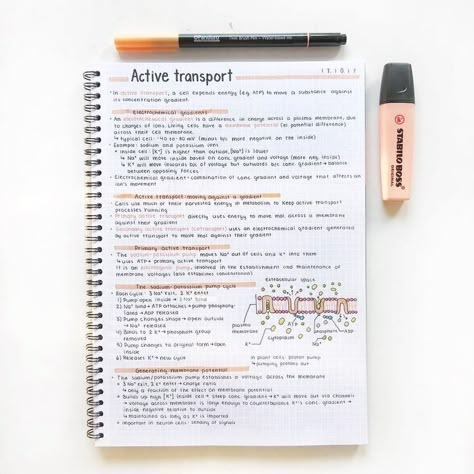 17.10.17
Active transport
· In active transport, a cell expends energy (e.g. ATP) to move a substance against
its concentration gradient.
Electrochemical gradients
· An electrochemical gradient is a difference in charge across a plasma membrane, due
to charges of ions. Living cells have a membrane potential (= potential difference)
across their cell membrane.
↳ typical cell: -40 to -80 mV (minus b/c more negative on the inside)
· Example: sodium and potassium ions
• inside cell: [K⁺] is higher than outside, [Na⁺] is lower
↳ Na⁺ will move inside based on conc. gradient and voltage (more neg. inside)
↳ K⁺ will move inwards b/c of voltage but outwards b/c conc. gradient → balance
between opposing forces
· Electrochemical gradient = combination of conc. gradient and voltage that affects an
ion's movement
Active transport: moving against a gradient
· Cells use much of their harvested energy in metabolism to keep active transport
processes running
· Primary active transport directly uses energy to move mol. across a membrane
against their gradient
· Secondary active transport (cotransport) uses an electrochemical gradient generated
by active transport to move mol. against their gradient
Primary active transport
· The sodium-potassium pump moves Na⁺ out of cells and K⁺ into them
↳ uses ATP → primary active transport
· It is an electrogenic pump, involved in the establishment and maintenance of
membrane voltages (also establishes concentration)
The sodium-potassium pump cycle
· Each cycle: 3 Na⁺ exit, 2 K⁺ enter
1) Pump open inside → 3 Na⁺ bind
2) Na⁺ bind → ATP attaches → pump phosphory-
lated → ADP released
3) Pump changes shape → open outside
↳ Na⁺ released
4) Binds to 2 K⁺ → phosphate group
removed
5) Pump changes to original form → open
inside
6) Releases K⁺ → new cycle
extracellular space
plasma
membrane
K⁺
cytoplasm
ATP
Na⁺
in plant cells: proton pump
↳ pumping protons out
Generating membrane potential
· The sodium/potassium pump establishes a voltage across the membrane
• 3 Na⁺ exit, 2 K⁺ enter → charge ratio
↳ only a fraction of the effect on membrane potential
• Builds up high [K⁺] inside cell → steep conc. gradient → K⁺ will move out via channels
→ voltage across membrane is large enough to counterbalance K⁺'s conc. gradient →
inside negative relative to outside
↳ maintained as long as K⁺ is imported
• important in neuron cells: sending of signals
STABILO BOSS